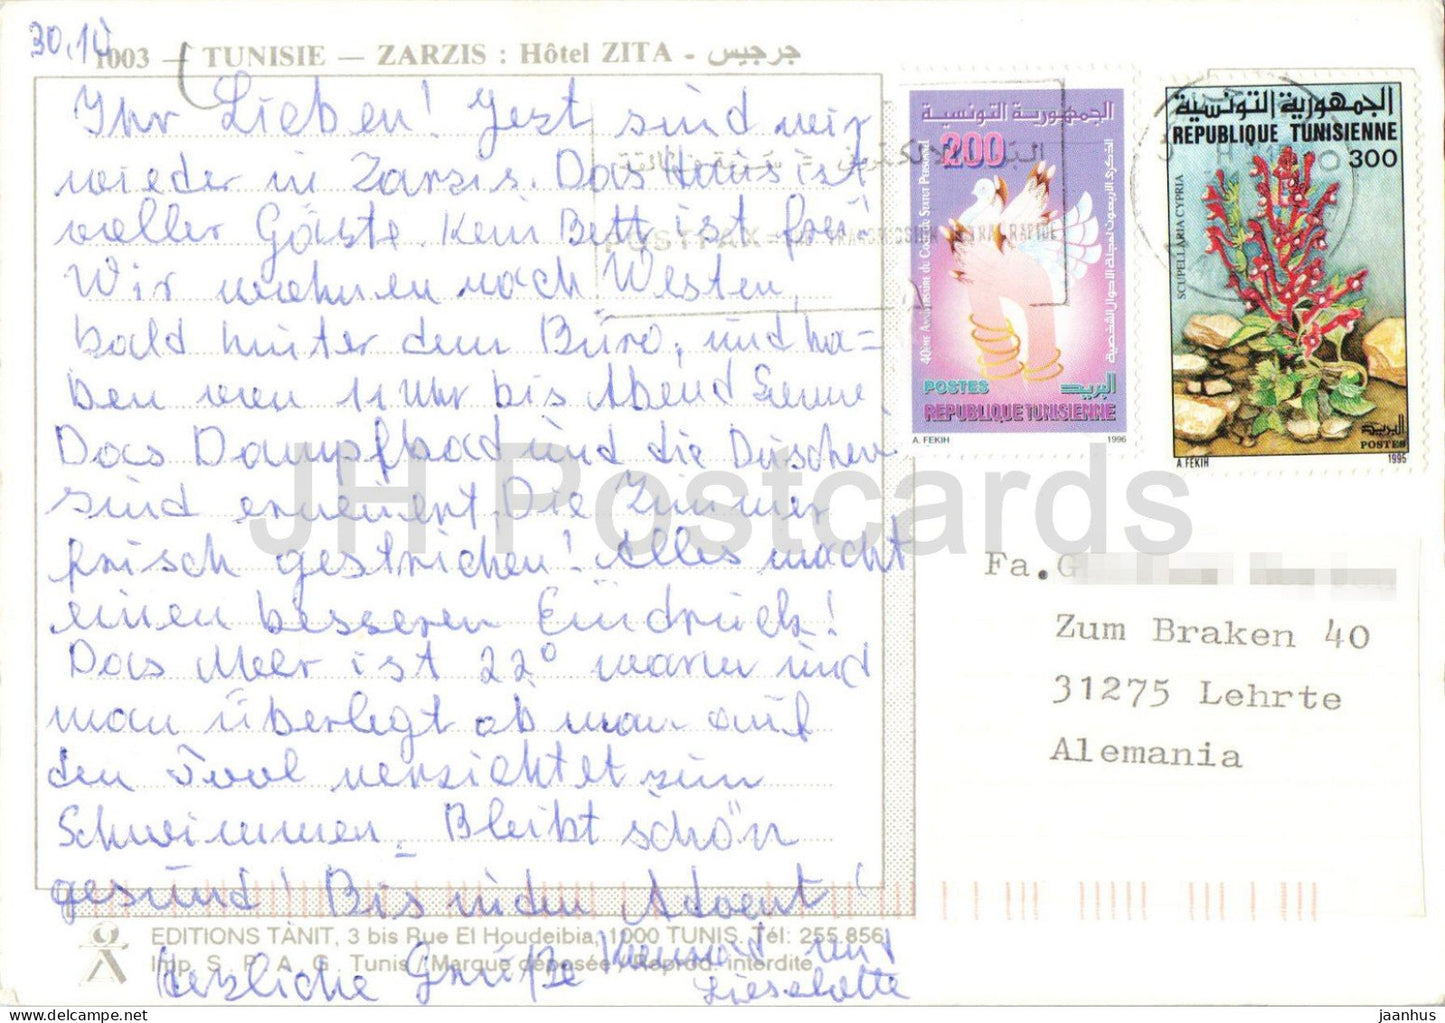 30.10
1003 — TUNISIE — ZARZIS : Hôtel ZITA - جرجيس
Ihr Lieben! Jezt sind wir
wieder in Zarzis. Das Haus ist
voller Gäste. Kein Bett ist frei.
Wir wohnen nach Westen,
bald hinter dem Büro, und ha=
ben von 11 Uhr bis Abend Sonne.
Das Dampfbad und die Duschen
sind erneuert. Die Zimmer
frisch gestrichen! Alles macht
einen besseren Eindruck!
Das Meer ist 22° warm und
man überlegt ob man auf
den Pool verzichtet zum
Schwimmen. Bleibt schön
gesund! Bis in den Advent!
herzliche Grüße und
Lieselotte
EDITIONS TÀNIT, 3 bis Rue El Houdeibia, 1000 TUNIS, Tél: 255.856
Imp. S. P. A. G. Tunis / Marque déposée / Reprod. interdite
الجمهورية التونسية
200
الذكرى الأربعون لمجلة الأحوال الشخصية
40ÈME ANNIVERSAIRE du CODE du STATUT PERSONNEL
POSTES البريد
REPUBLIQUE TUNISIENNE
A. FEKIH 1996
الجمهورية التونسية
REPUBLIQUE TUNISIENNE
300
SCUPELLARIA CYPRIA
البريد
POSTES
A. FEKIH 1995
JH Postcards
Fa. G
Zum Braken 40
31275 Lehrte
Alemania
jaanhus © www.hippostcard.com